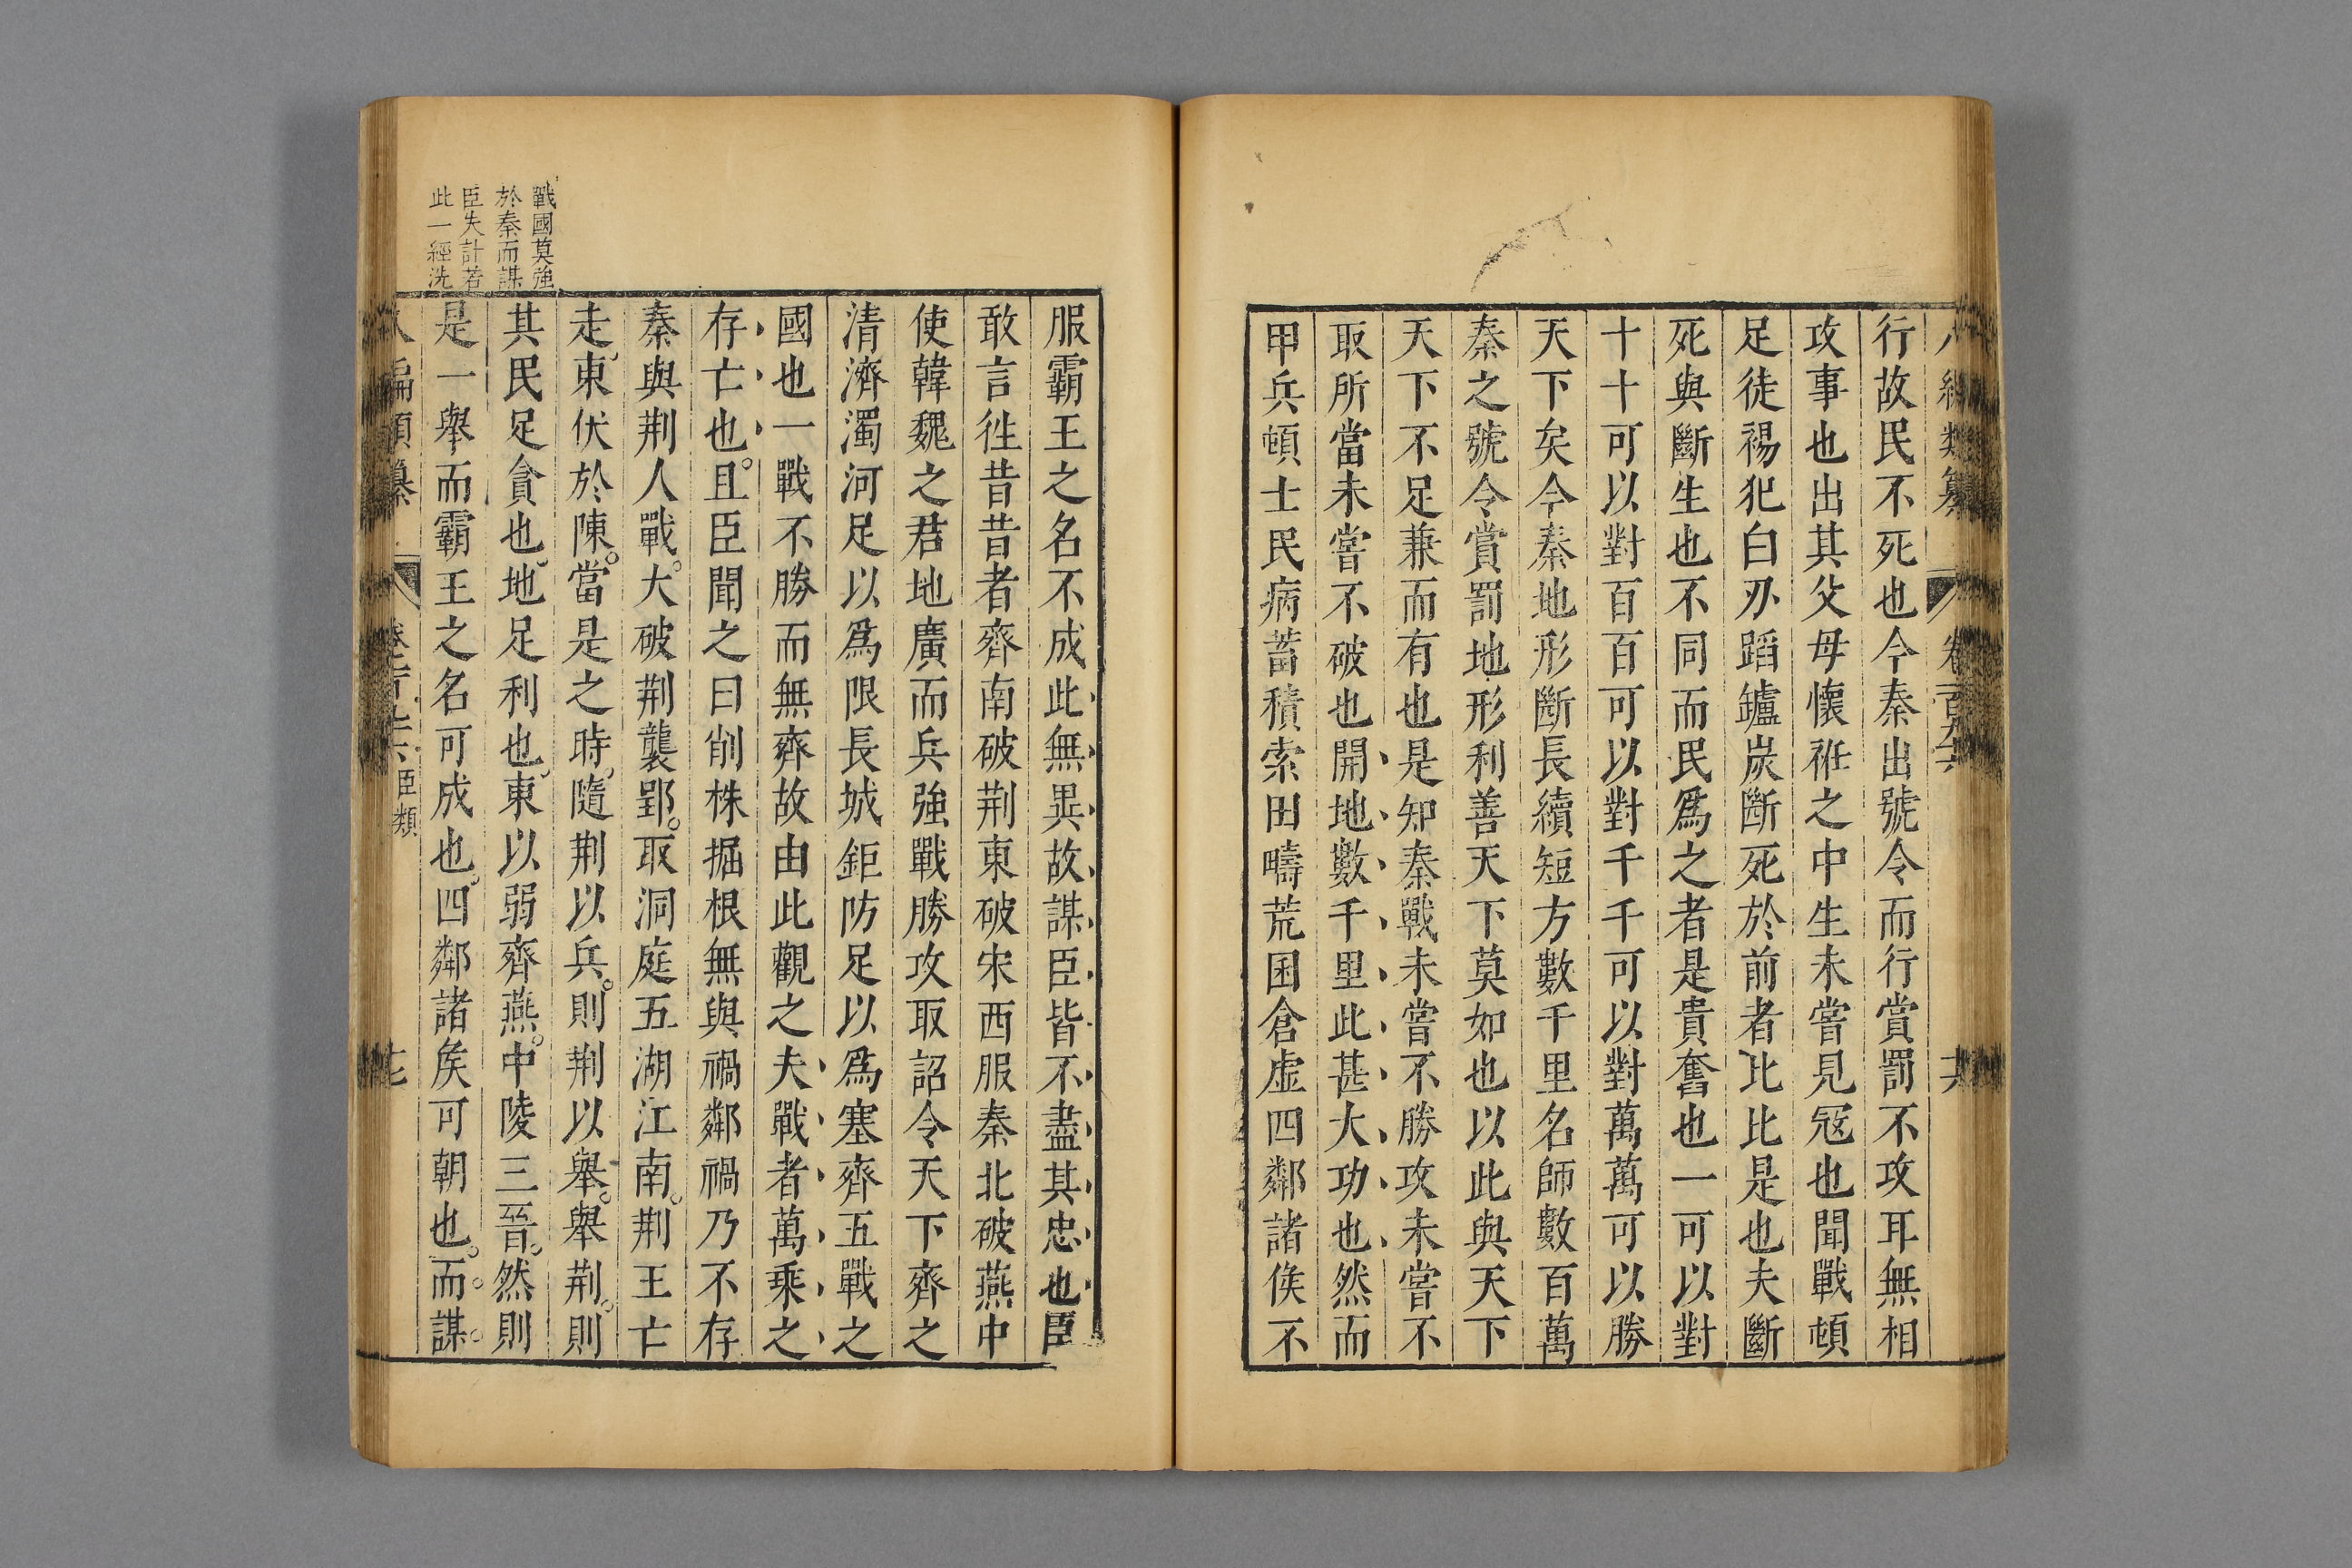 行故民不死也今秦出號令而行賞罰不攻耳無相
攻事也出其父母懷袵之中生未嘗見冦也聞戰頓
足徒裼犯白刃蹈鑪炭斷死於前者比比是也夫斷
死與斷生也不同而民爲之者是貴奮也一可以對
十十可以對百百可以對千千可以對萬萬可以勝
天下矣今秦地形斷長續短方數千里名師數百萬
秦之號令賞罰地形利善天下莫如也以此與天下
天下不足兼而有也是知秦戰未嘗不勝攻未嘗不
取所當未嘗不破也開地數千里此甚大功也然而
甲兵頓士民病蓄積索田疇荒囷倉虛四鄰諸侯不
服霸王之名不成此無異故謀臣皆不盡其忠也臣
敢言徃昔昔者齊南破荆東破宋西服秦北破燕中
使韓魏之君地廣而兵強戰勝攻取詔令天下齊之
清濟濁河足以爲限長城鉅防足以爲塞齊五戰之
國也一戰不勝而無齊故由此觀之夫戰者萬乘之
存亡也。且臣聞之曰削株掘根無與禍鄰禍乃不存
秦與荆人戰。大破荆襲郢。取洞庭五湖江南。荆王亡
走東伏於陳。當是之時隨荆以兵。則荆以舉。舉荆。則
其民足貪也地足利也東以弱齊燕。中陵三晉。然則
戰國莫強
於秦而謀
臣失計若
此一經洗
是一舉而霸王之名可成也。四鄰諸矦可朝也。而。謀。
編類纂 臣類